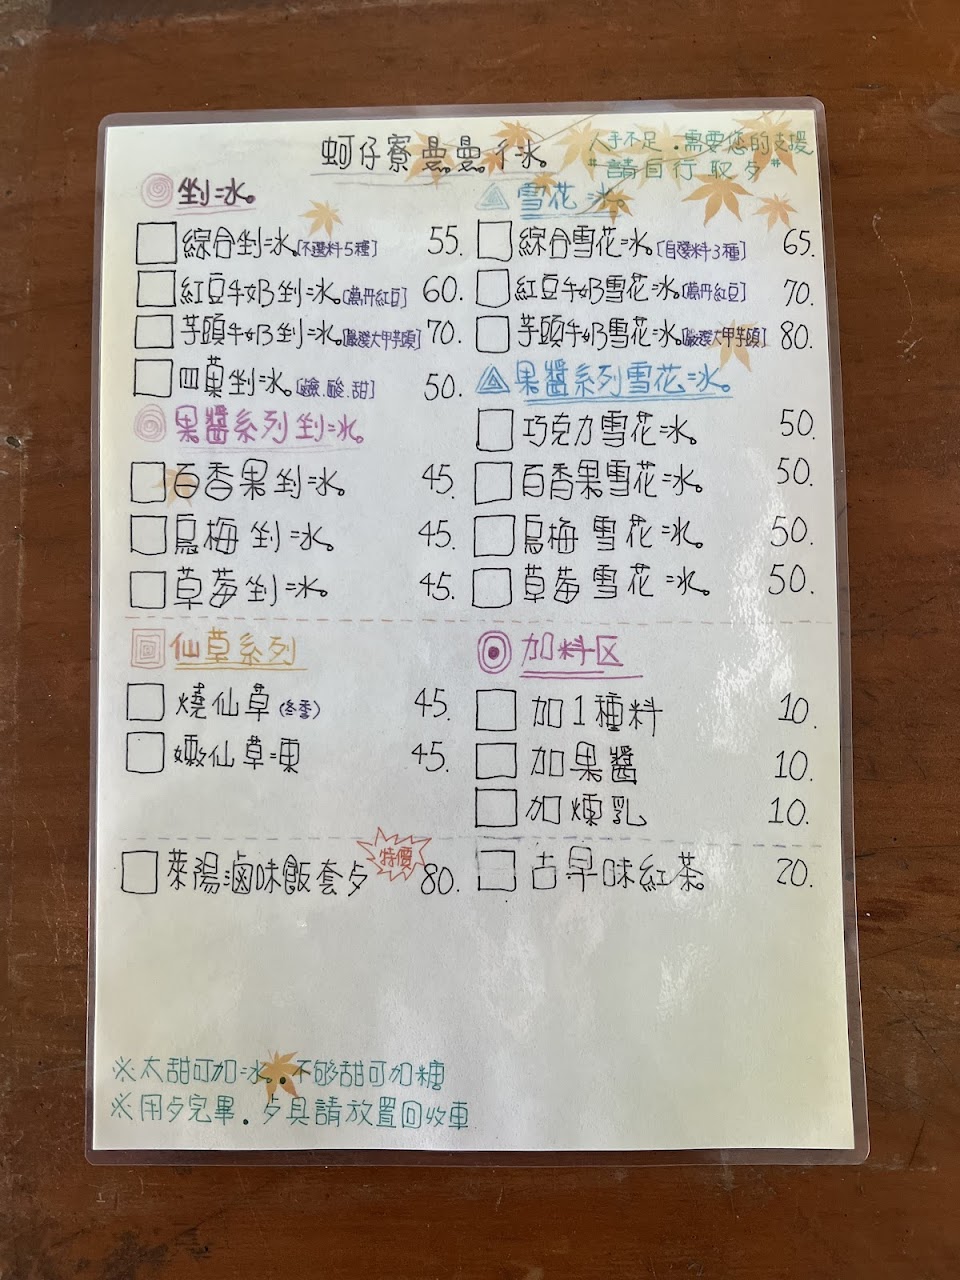 蚵仔寮疊疊彳冰。
人手不足.需要您的支援
"請自行取歺"
剉冰。
綜合剉冰。[不選料5種] 55.
紅豆牛奶剉冰。[萬丹紅豆] 60.
芋頭牛奶剉冰。[嚴選大甲芋頭] 70.
四菓剉冰。[鹼.酸.甜] 50.
果醬系列剉冰。
百香果剉冰。 45.
烏梅剉冰。 45.
草莓剉冰。 45.
雪花冰。
綜合雪花冰。[自選料3種] 65.
紅豆牛奶雪花冰。[萬丹紅豆] 70.
芋頭牛奶雪花冰。[嚴選大甲芋頭] 80.
果醬系列雪花冰。
巧克力雪花冰。 50.
百香果雪花冰。 50.
烏梅雪花冰。 50.
草莓雪花冰。 50.
仙草系列
燒仙草(冬季) 45.
嫩仙草凍 45.
加料区
加1種料 10.
加果醬 10.
加煉乳 10.
萊陽滷味飯套歺 特價 80.
古早味紅茶。 20.
※太甜可加冰.不够甜可加糖
※用歺完畢.歺具請放置回收車